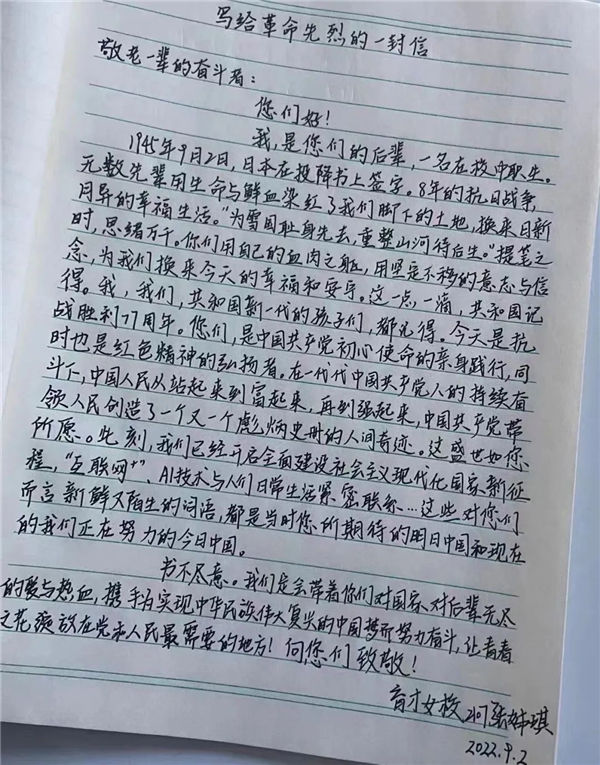 写给革命先烈的一封信
敬老一辈的奋斗者：
您们好！
我，是您们的后辈，一名在校中职生。
1945年9月2日，日本在投降书上签字。8年的抗日战争，
无数先辈用生命与鲜血染红了我们脚下的土地，换来日新
月异的幸福生活。“为雪国耻身先去，重整山河待后生。”提笔之
时，思绪万千。你们用自己的血肉之躯，用坚定不移的意志与信
念，为我们换来今天的幸福和安宁。这一点，一滴，共和国记
得。我，我们，共和国新一代的孩子们，都记得。今天是抗
战胜利77周年。您们，是中国共产党初心使命的亲身践行，同
时也是红色精神的弘扬者。在一代代中国共产党人的持续奋
斗下，中国人民从站起来到富起来，再到强起来，中国共产党带
领人民创造了一个又一个彪炳史册的人间奇迹。这盛世如您
所愿。此刻，我们已经开启全面建设社会主义现代化国家新征
程，“互联网+”、AI技术与人们日常生活紧密联系…这些对您们
而言新鲜又陌生的词语，都是当时您所期待的明日中国和现在
的我们正在努力的今日中国。
书不尽意。我们定会带着你们对国家、对后辈无尽
的爱与热血，携手为实现中华民族伟大复兴的中国梦而努力奋斗，让青春
之花绽放在党和人民最需要的地方！向您们致敬！
育才女校 张 琪
2022.9.2